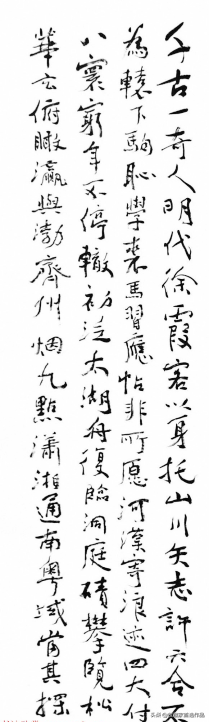 千古一奇人明代徐霞客以身托山川矢志許六合不
為轅下駒恥學裘馬習應帖非所愿河漢寄浪迹四大付
八寰窮年不停轍初泛太湖舟復臨洞庭磧攀覽松
華玄俯瞰瀛與渤齊州烟九點瀟湘通南粤域當其探